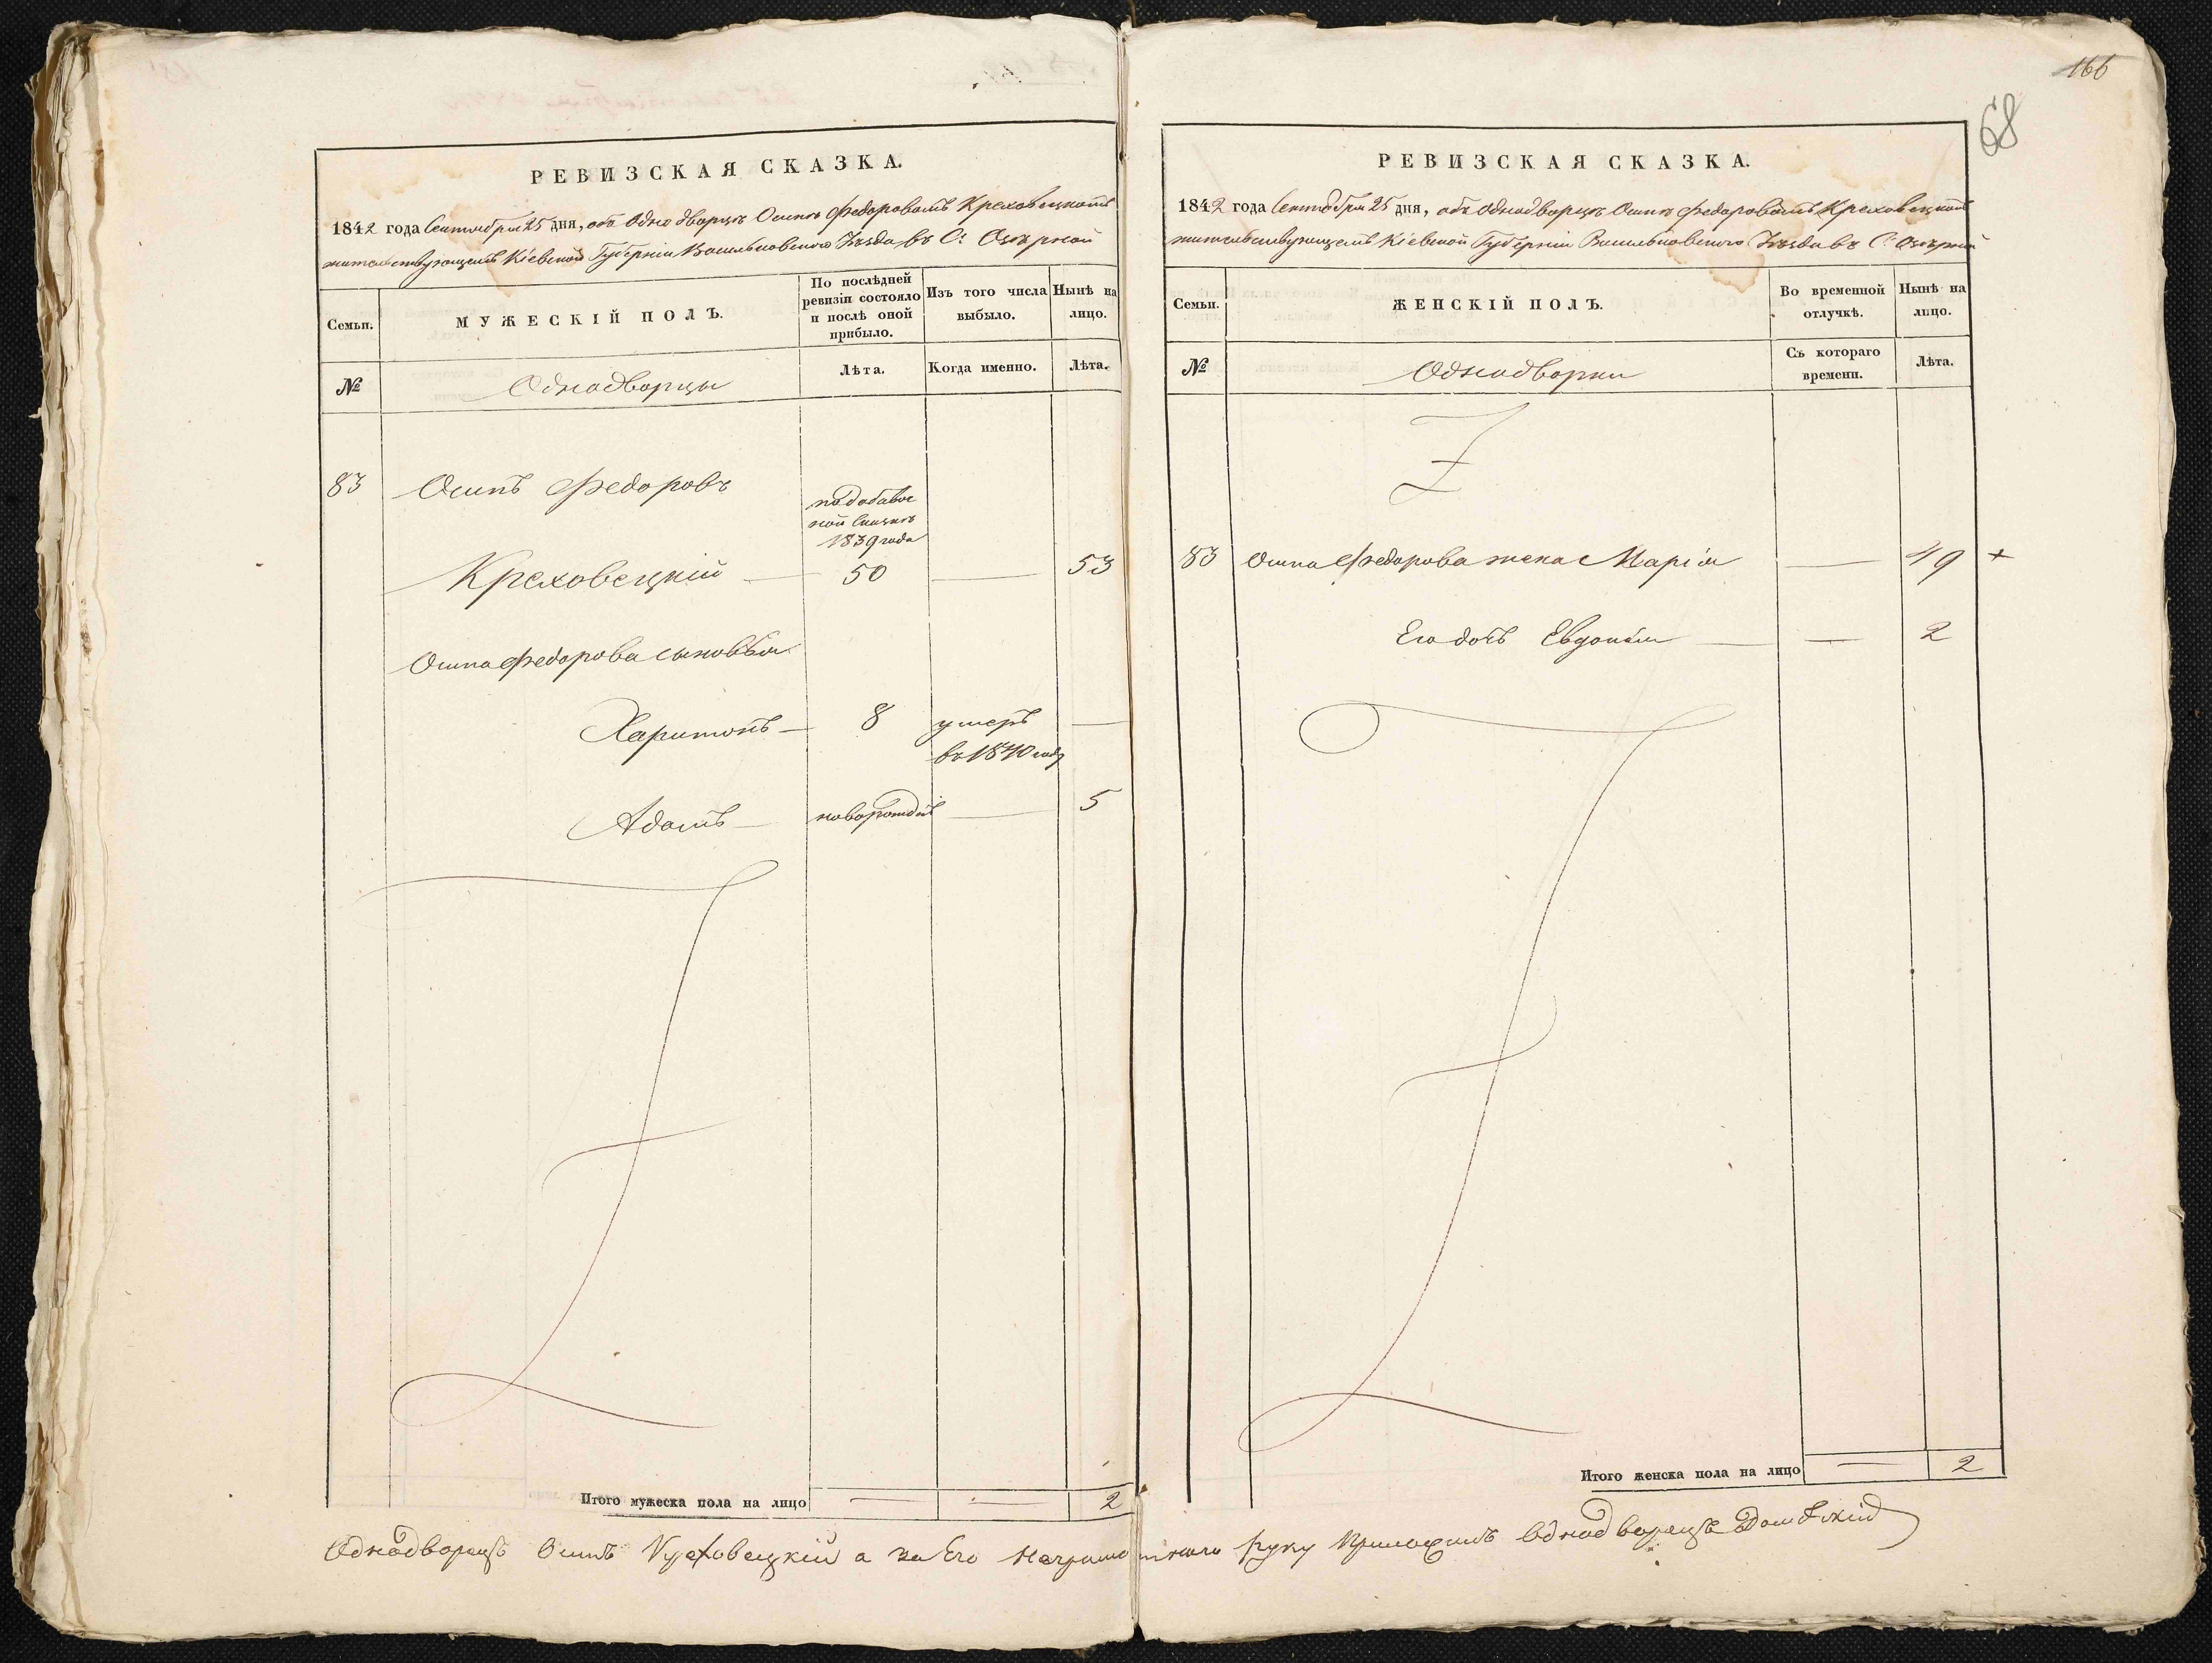 РЕВИЗСКАЯ СКАЗКА.
1842 года Сентября 25 дня, объ Однодворцѣ Осипѣ Федоровомъ Креховецкомъ
жительствующемъ Кіевской Губерніи Васильковскаго Уѣзда въ С: Озѣрной
Семьи.
МУЖЕСКІЙ ПОЛЪ.
По послѣдней
ревизіи состояло
и послѣ оной
прибыло.
Изъ того числа
выбыло.
Нынѣ на
лицо.
№
Однодворцы
Лѣта.
Когда именно.
Лѣта.
83 Осипъ Федоровъ
по добавоч
ной Сказкѣ
1839 года
Креховецкій — 50 — 53
Осипа Федорова сыновья
Харитонъ — 8 умеръ —
въ 1840 году
Адамъ — новорожден — 5
Итого мужеска пола на лицо — — 2
166
68
РЕВИЗСКАЯ СКАЗКА.
1842 года Сентября 25 дня, объ Однодворцѣ Осипѣ Федоровомъ Креховецкомъ
жительствующемъ Кіевской Губерніи Васильковского Уѣзда въ С: Озѣрной
Семьи.
ЖЕНСКІЙ ПОЛЪ.
Во временной
отлучкѣ.
Нынѣ на
лицо.
№
Однодворки
Съ котораго
времени.
Лѣта.
83 Осипа Федорова жена Марія — 49 +
Его дочь Евдокія — — 2
Итого женска пола на лицо — 2
Однодворецъ Осипъ Креховецкій а за Его Неграмотного Руку Приложилъ Однодворецъ